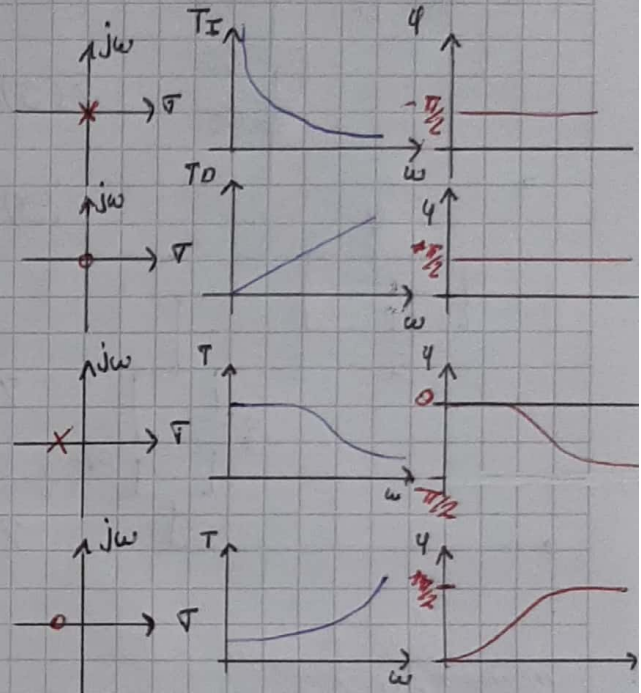 jω σ TI ω φ -π/2
jω σ TD ω φ +π/2
jω σ T ω φ 0 -π/2
jω σ T ω φ +π/2